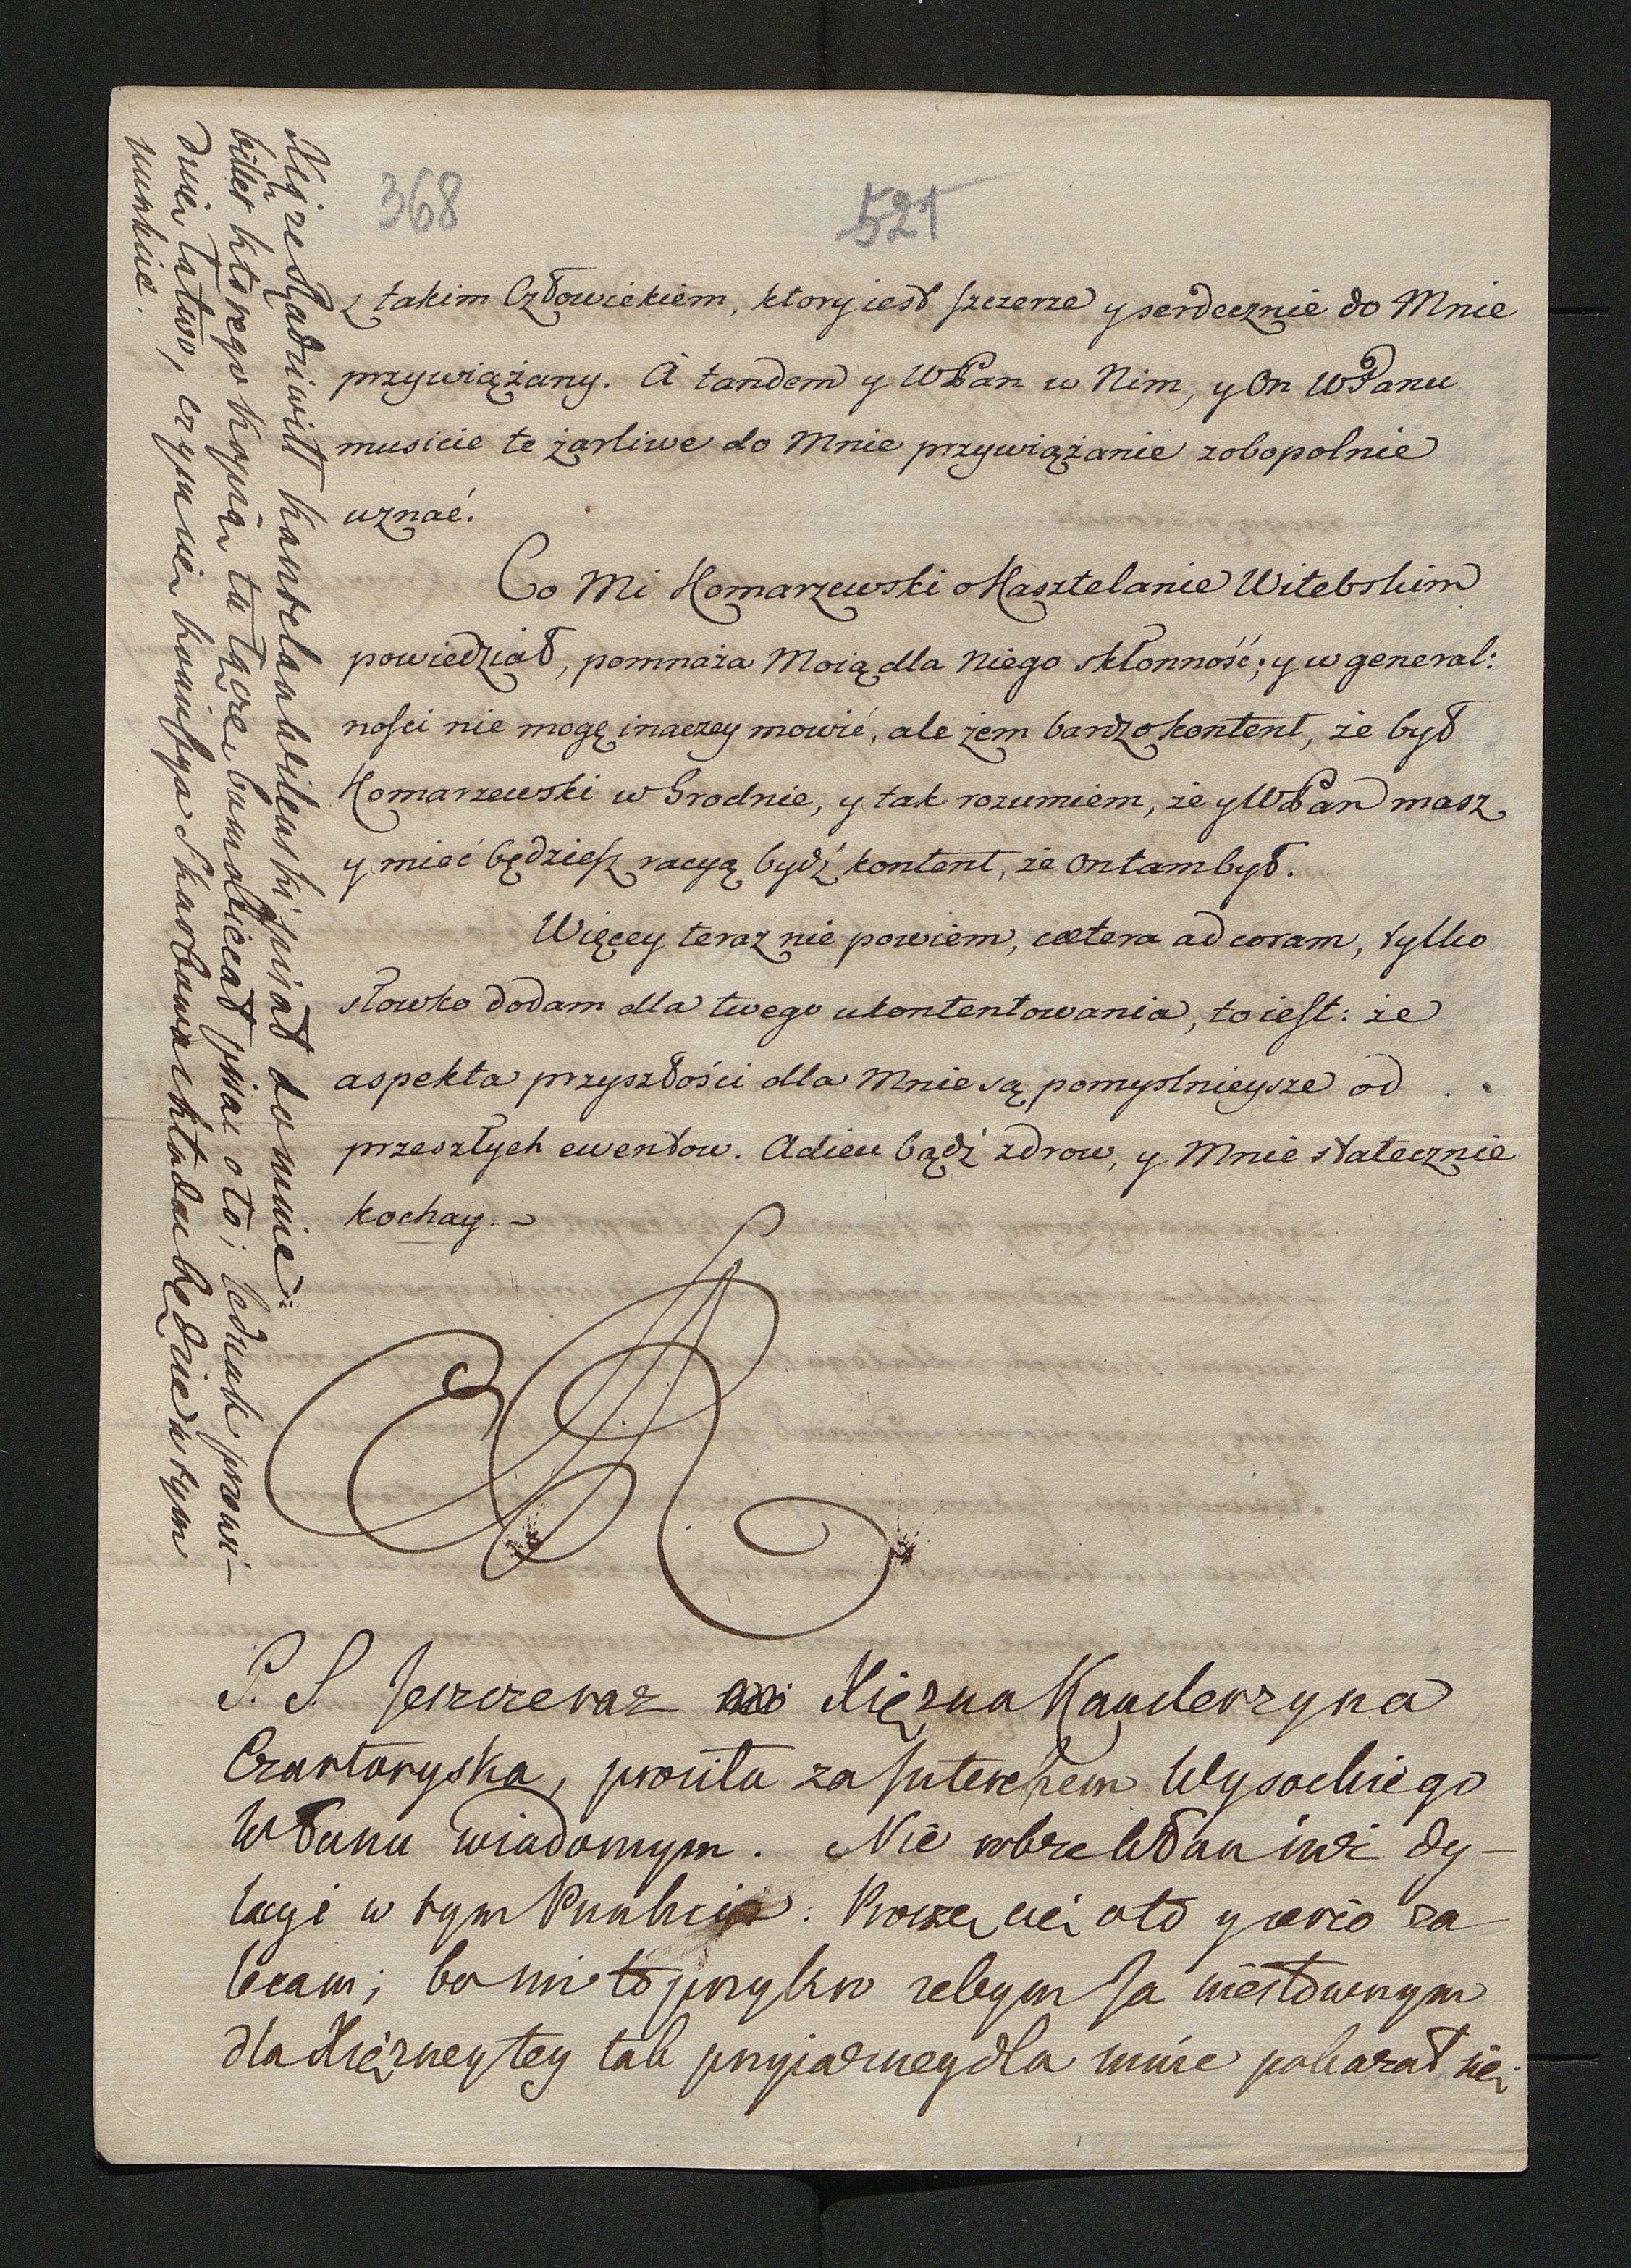 368
521
z takim Człowiekiem, ktory iest szczerze y serdecznie do Mnie
przywiązany. A tandem y WPan w Nim, y On WPanu
musicie te żarliwe do Mnie przywiązanie zobopolnie
uznać.
Co Mi Komarzewski o Kasztelanie Witebskim
powiedział, pomnaża Moią dla Niego skłonność; y w general:
ności nie mogę inaczey mowić, ale żem bardzo kontent, że był
Komarzewski w Grodnie, y tak rozumiem, że y WPan masz
y mieć będziesz racyą bydź kontent, że On tam był.
Więcey teraz nie powiem, cætera ad coram, tylko
słowko dodam dla twego ukontentowania, to iest: że
aspekta przyszłości dla Mnie są pomyslnieysze od
przeszłych ewentow. Adieu bądź zdrow, y Mnie statecznie
kochay. –
P. S. Jeszcze raz Xiężna Kanclerzyna
Czartoryska, prosiła za Interessem Wysockiego
WPanu wiadomym. Nie robże WPan iuż dy-
lacyi w tym Punkcie. Proszę cię o to y serio za
lecam; bo mi to przykro zebym Ja niesłownym
dla Xiężney tey tak przyiazney dla mnie pokazał się.
Xiąze Radziwiłł kasztelan wilenski pisał do mnie
billet ktorego kopią tu łączę, bom obiecał pisac o to; iednak przewi-
duię łatwo, czym się kommissya Skarbowa składac będzie w tym
punkcie.